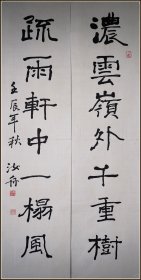 濃雲嶺外千重樹
疏雨軒中一榻風
壬辰年秋